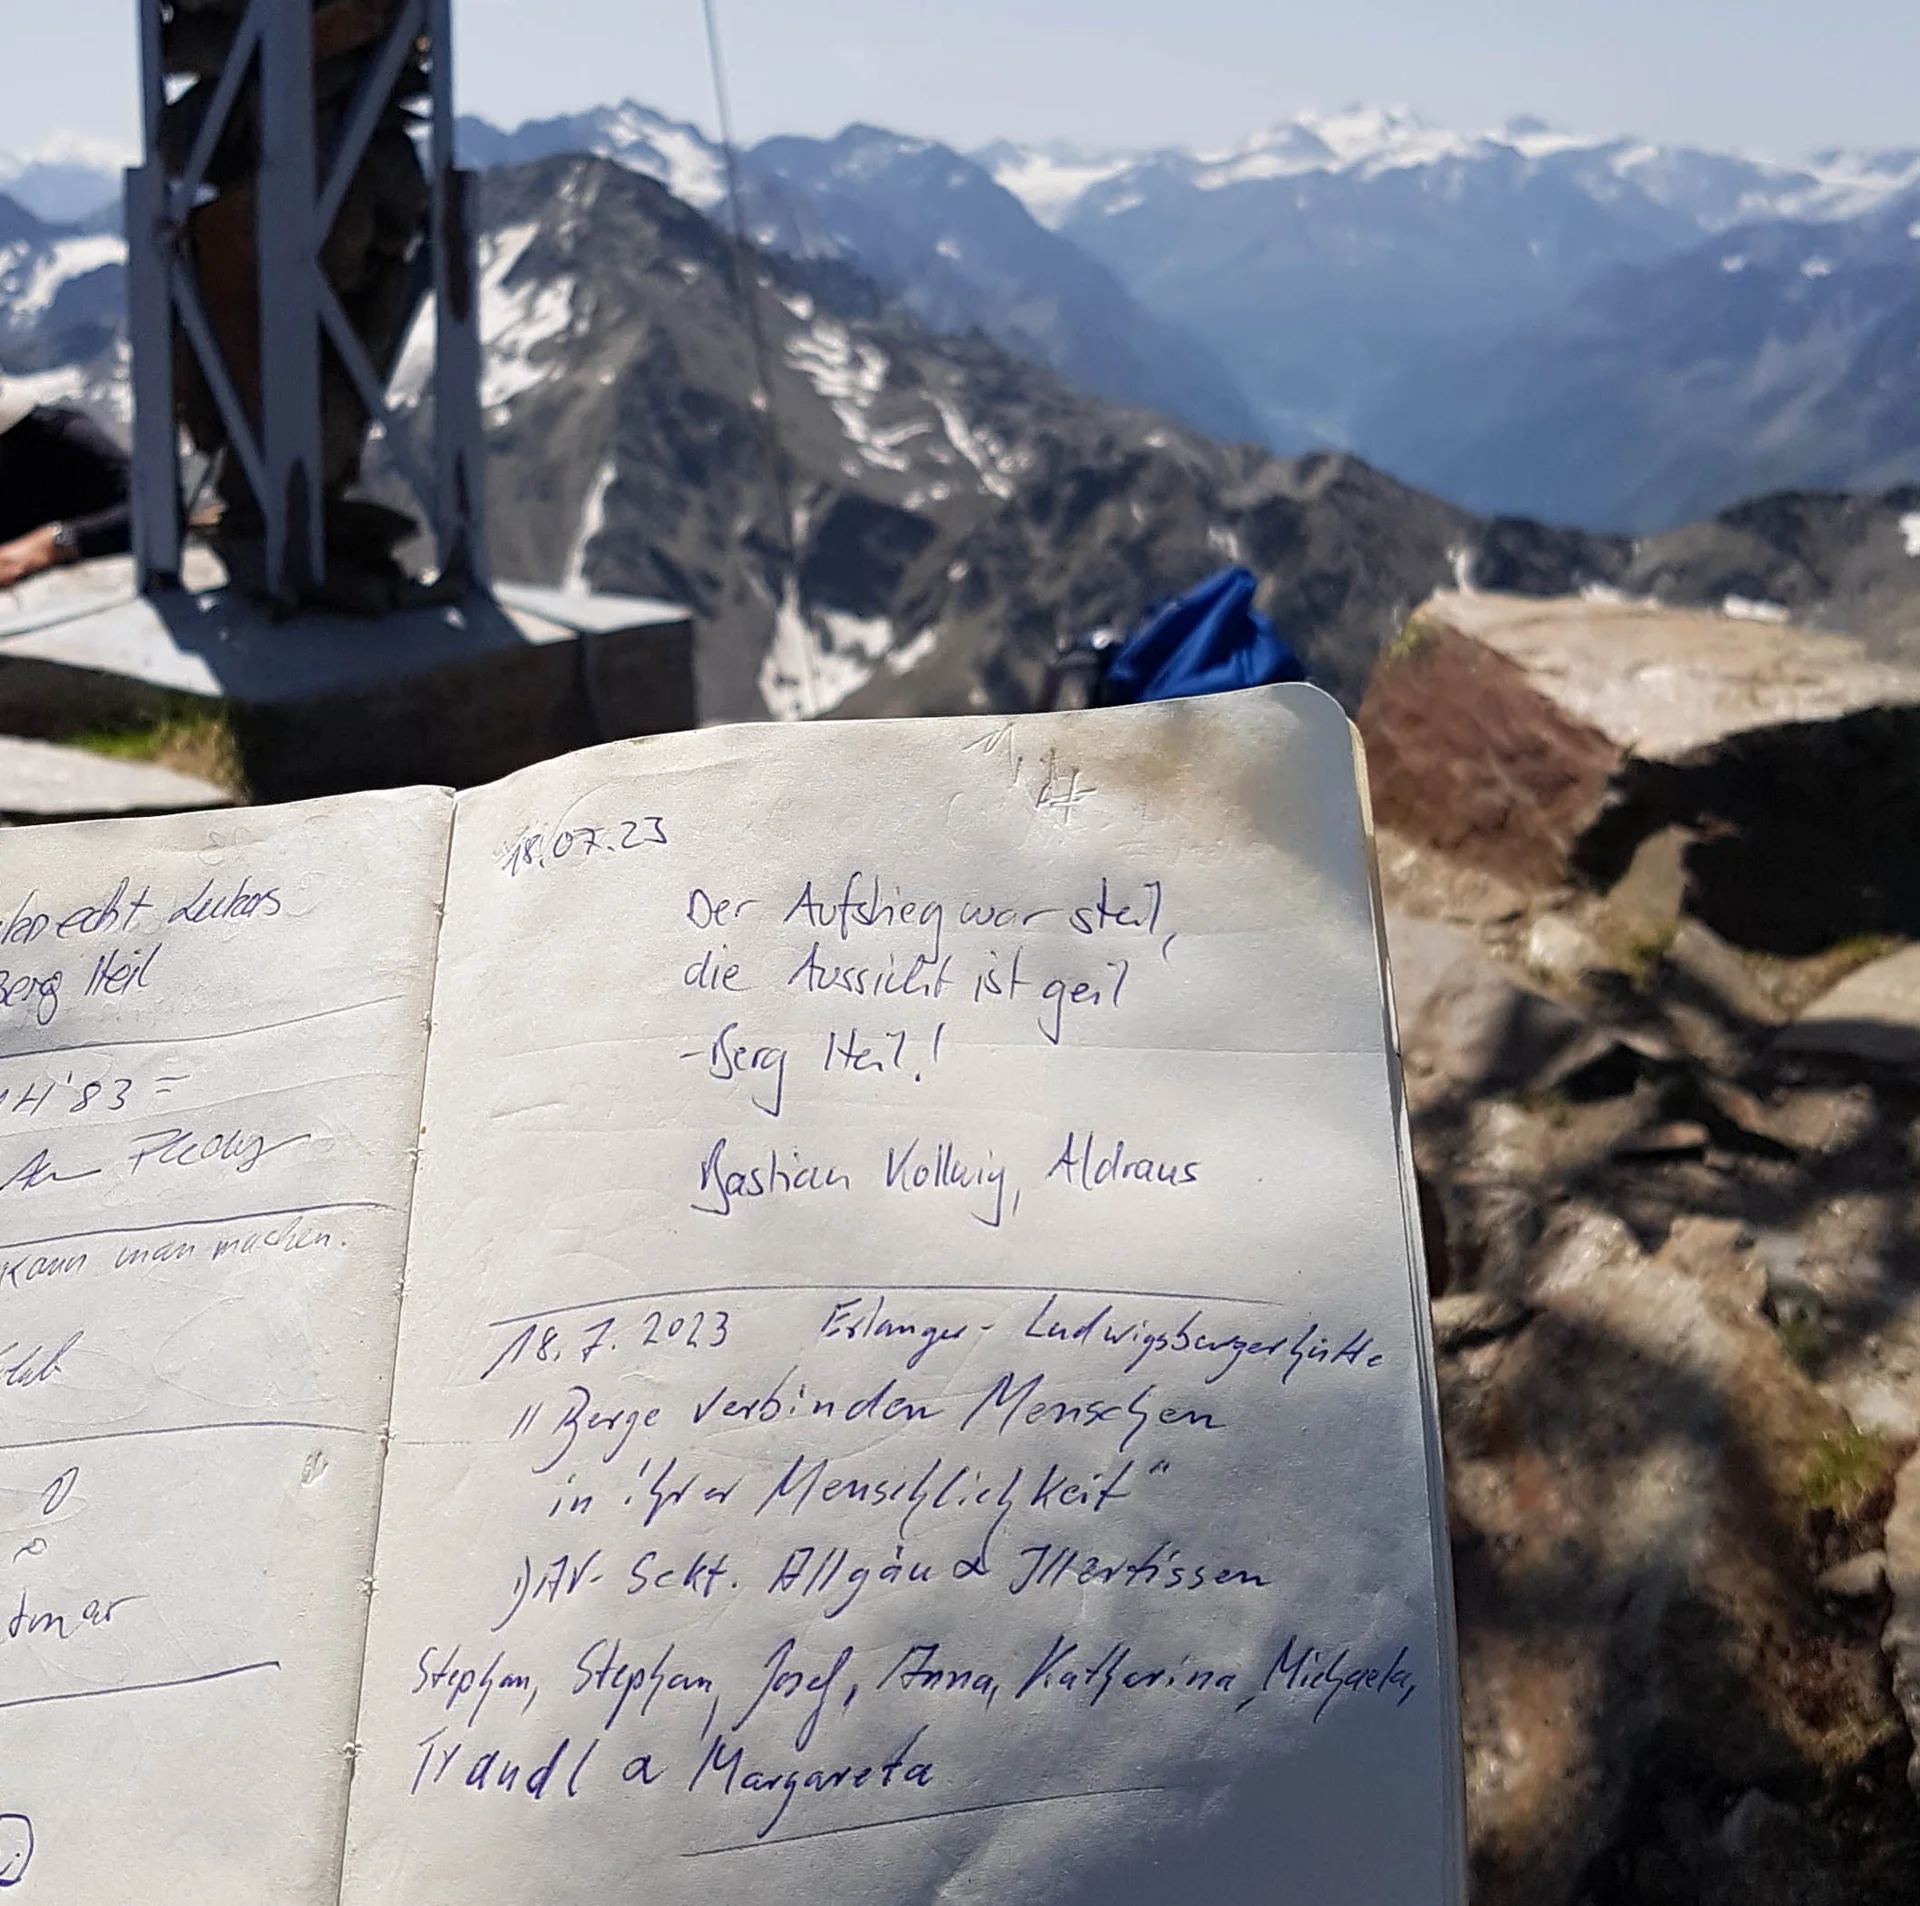 echt Lukas
Berg Heil
'83 =
Kann man machen.
18.07.23
Der Aufstieg war steil,
die Aussicht ist geil
-Berg Heil!
Bastian Kollwig, Aldraus
18.7.2023 Erlanger- Ludwigsburgerhütte
"Berge verbinden Menschen
in ihrer Menschlichkeit"
DAV- Sekt. Allgäu & Illertissen
Stephan, Stephan, Josef, Anna, Katharina, Michaela,
Traudl & Margareta